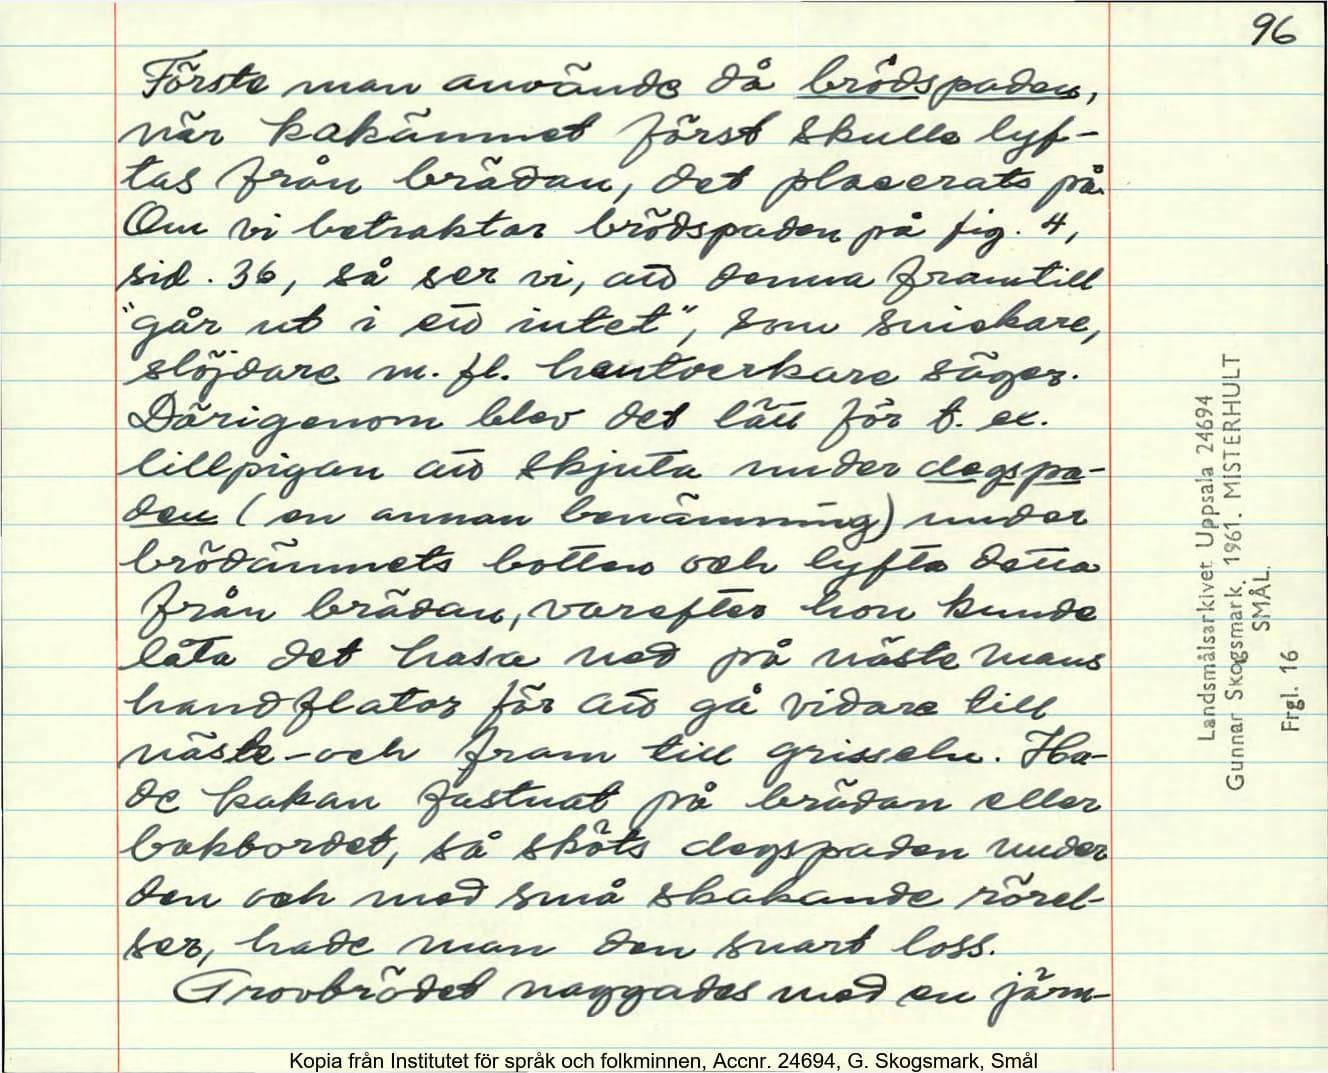 96
Förste man använde då brödspaden,
när kakämnet först skulle lyf-
tas från brädan, det placerats på.
Om vi betraktar brödspaden på fig. 4,
sid. 36, så ser vi, att denna framtill
"går ut i ett intet", som snickare,
slöjdare m. fl. hantverkare säger.
Därigenom blev det lätt för t. ex.
lillpigan att skjuta under degspa-
den (en annan benämning) under
brödämnets botten och lyfta detta
från brädan, varefter hon kunde
låta det hasa ned på näste mans
handflator för att gå vidare till
näste - och fram till grisseln. Ha-
de kakan fastnat på brädan eller
bakbordet, så sköts degspaden under
den och med små skakande rörel-
ser, hade man den snart loss.
Grovbrödet naggades med en järn-
Landsmålsarkivet Uppsala 24694
Gunnar Skogsmark. 1961. MISTERHULT
SMÅL.
Frgl. 16
Kopia från Institutet för språk och folkminnen, Accnr. 24694, G. Skogsmark, Smål